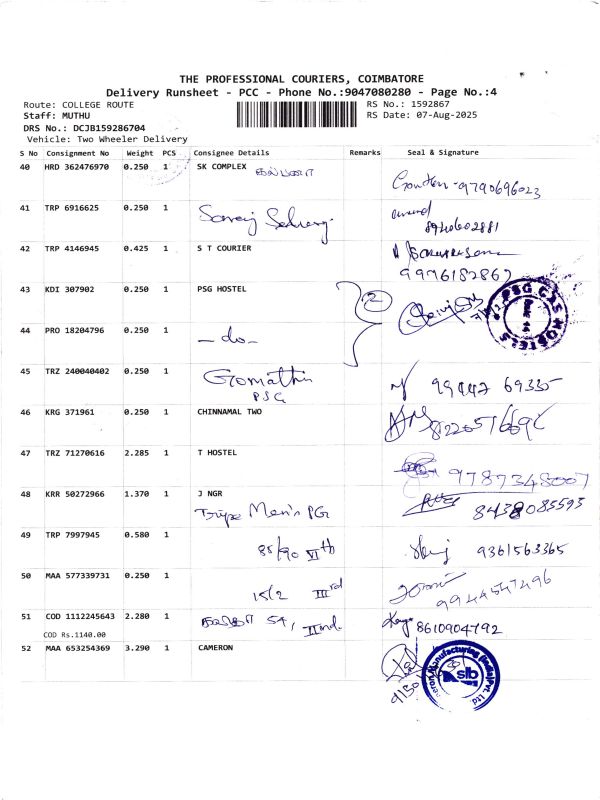 THE PROFESSIONAL COURIERS, COIMBATORE
Delivery Runsheet - PCC - Phone No.:9047080280 - Page No.:4
Route: COLLEGE ROUTE RS No.: 1592867
Staff: MUTHU RS Date: 07-Aug-2025
DRS No.: DCJB159286704
Vehicle: Two Wheeler Delivery
S No Consignment No Weight PCS Consignee Details Remarks Seal & Signature
40 HRD 362476970 0.250 1 SK COMPLEX 9790696023
41 TRP 6916625 0.250 1 8940602881
42 TRP 4146945 0.425 1 S T COURIER
9976182867
43 KDI 307902 0.250 1 PSG HOSTEL 2 PSG CAS HOSTELS
44 PRO 18204796 0.250 1 - do -
45 TRZ 240040402 0.250 1 Gomathi 99447 69335
PSG
46 KRG 371961 0.250 1 CHINNAMAL TWO
47 TRZ 71270616 2.285 1 T HOSTEL 9787348007
48 KRR 50272966 1.370 1 J NGR 8438085593
Men's PG
49 TRP 7997945 0.580 1 88/90 VIth 9361563365
50 MAA 577339731 0.250 1 15/2 IIIrd 9944547496
51 COD 1112245643 2.280 1 54, IInd. 8610904792
COD Rs.1140.00
52 MAA 653254369 3.290 1 CAMERON
Manufacturing (India) Pvt. Ltd
slb